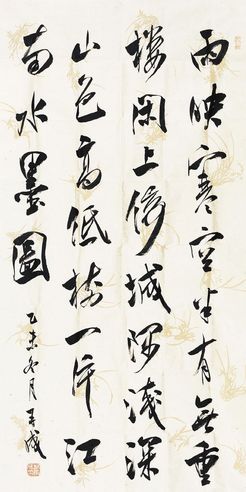 雨映寒空半有無重
樓閑上倚城隅淺深
山色高低樹一片江
南水墨圖
乙未冬月 成